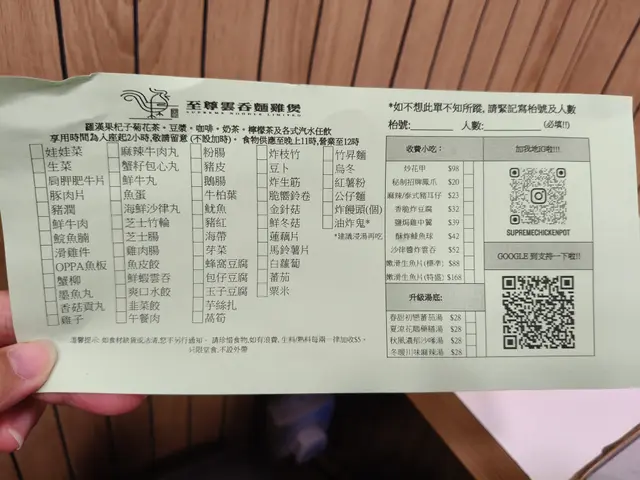 至尊雲吞麵雞煲
SUPREME NOODLE LIMITED
羅漢果杞子菊花茶。豆漿。咖啡。奶茶。檸檬茶及各式汽水任飲
享用時間為入座起2小時,敬請留意 (不設加時)。 食物供應至晚上11時,營業至12時
娃娃菜
生菜
肩胛肥牛片
豚肉片
豬潤
鮮牛肉
鯇魚腩
滑雞件
OPPA魚板
蟹柳
墨魚丸
香菇貢丸
雞子
麻辣牛肉丸
蟹籽包心丸
鮮牛丸
魚蛋
海鮮沙律丸
芝士竹輪
芝士腸
雞肉腸
魚皮餃
鮮蝦雲吞
爽口水餃
韭菜餃
午餐肉
粉腸
豬皮
鵝腸
牛柏葉
魷魚
豬紅
海帶
芽菜
蜂窩豆腐
包仔豆腐
玉子豆腐
芋絲扎
萵筍
炸枝竹
豆卜
炸生筋
脆響鈴卷
金針菇
鮮冬菇
蓮藕片
馬鈴薯片
白蘿蔔
蕃茄
粟米
竹昇麵
烏冬
紅薯粉
公仔麵
炸饅頭(個)
油炸鬼*
*建議浸湯再吃
溫馨提示: 如食材缺貨或沽清,恕不另行通知。 請珍惜食物,如有浪費, 生料/熟料每兩一律加收$5。
只限堂食,不設外帶
*如不想此單不知所蹤, 請緊記寫枱號及人數
枱號:
人數:
(必填!!)
收費小吃:
炒花甲 $98
秘制招牌鳳爪 $20
麻辣/泰式豬耳仔 $23
香脆炸豆腐 $32
鹽焗雞中翼 $39
酥炸鯪魚球 $42
沙律醬炸雲吞 $52
嫩滑生魚片(標準) $88
嫩滑生魚片(特盛) $168
升級湯底:
春甜初戀蕃茄湯 $28
$28
$28
冬暖川味麻辣湯 $28
加我地IG啦!!!
SUPREMECHICKENPOT
GOOGLE 到支持一下啦!!!